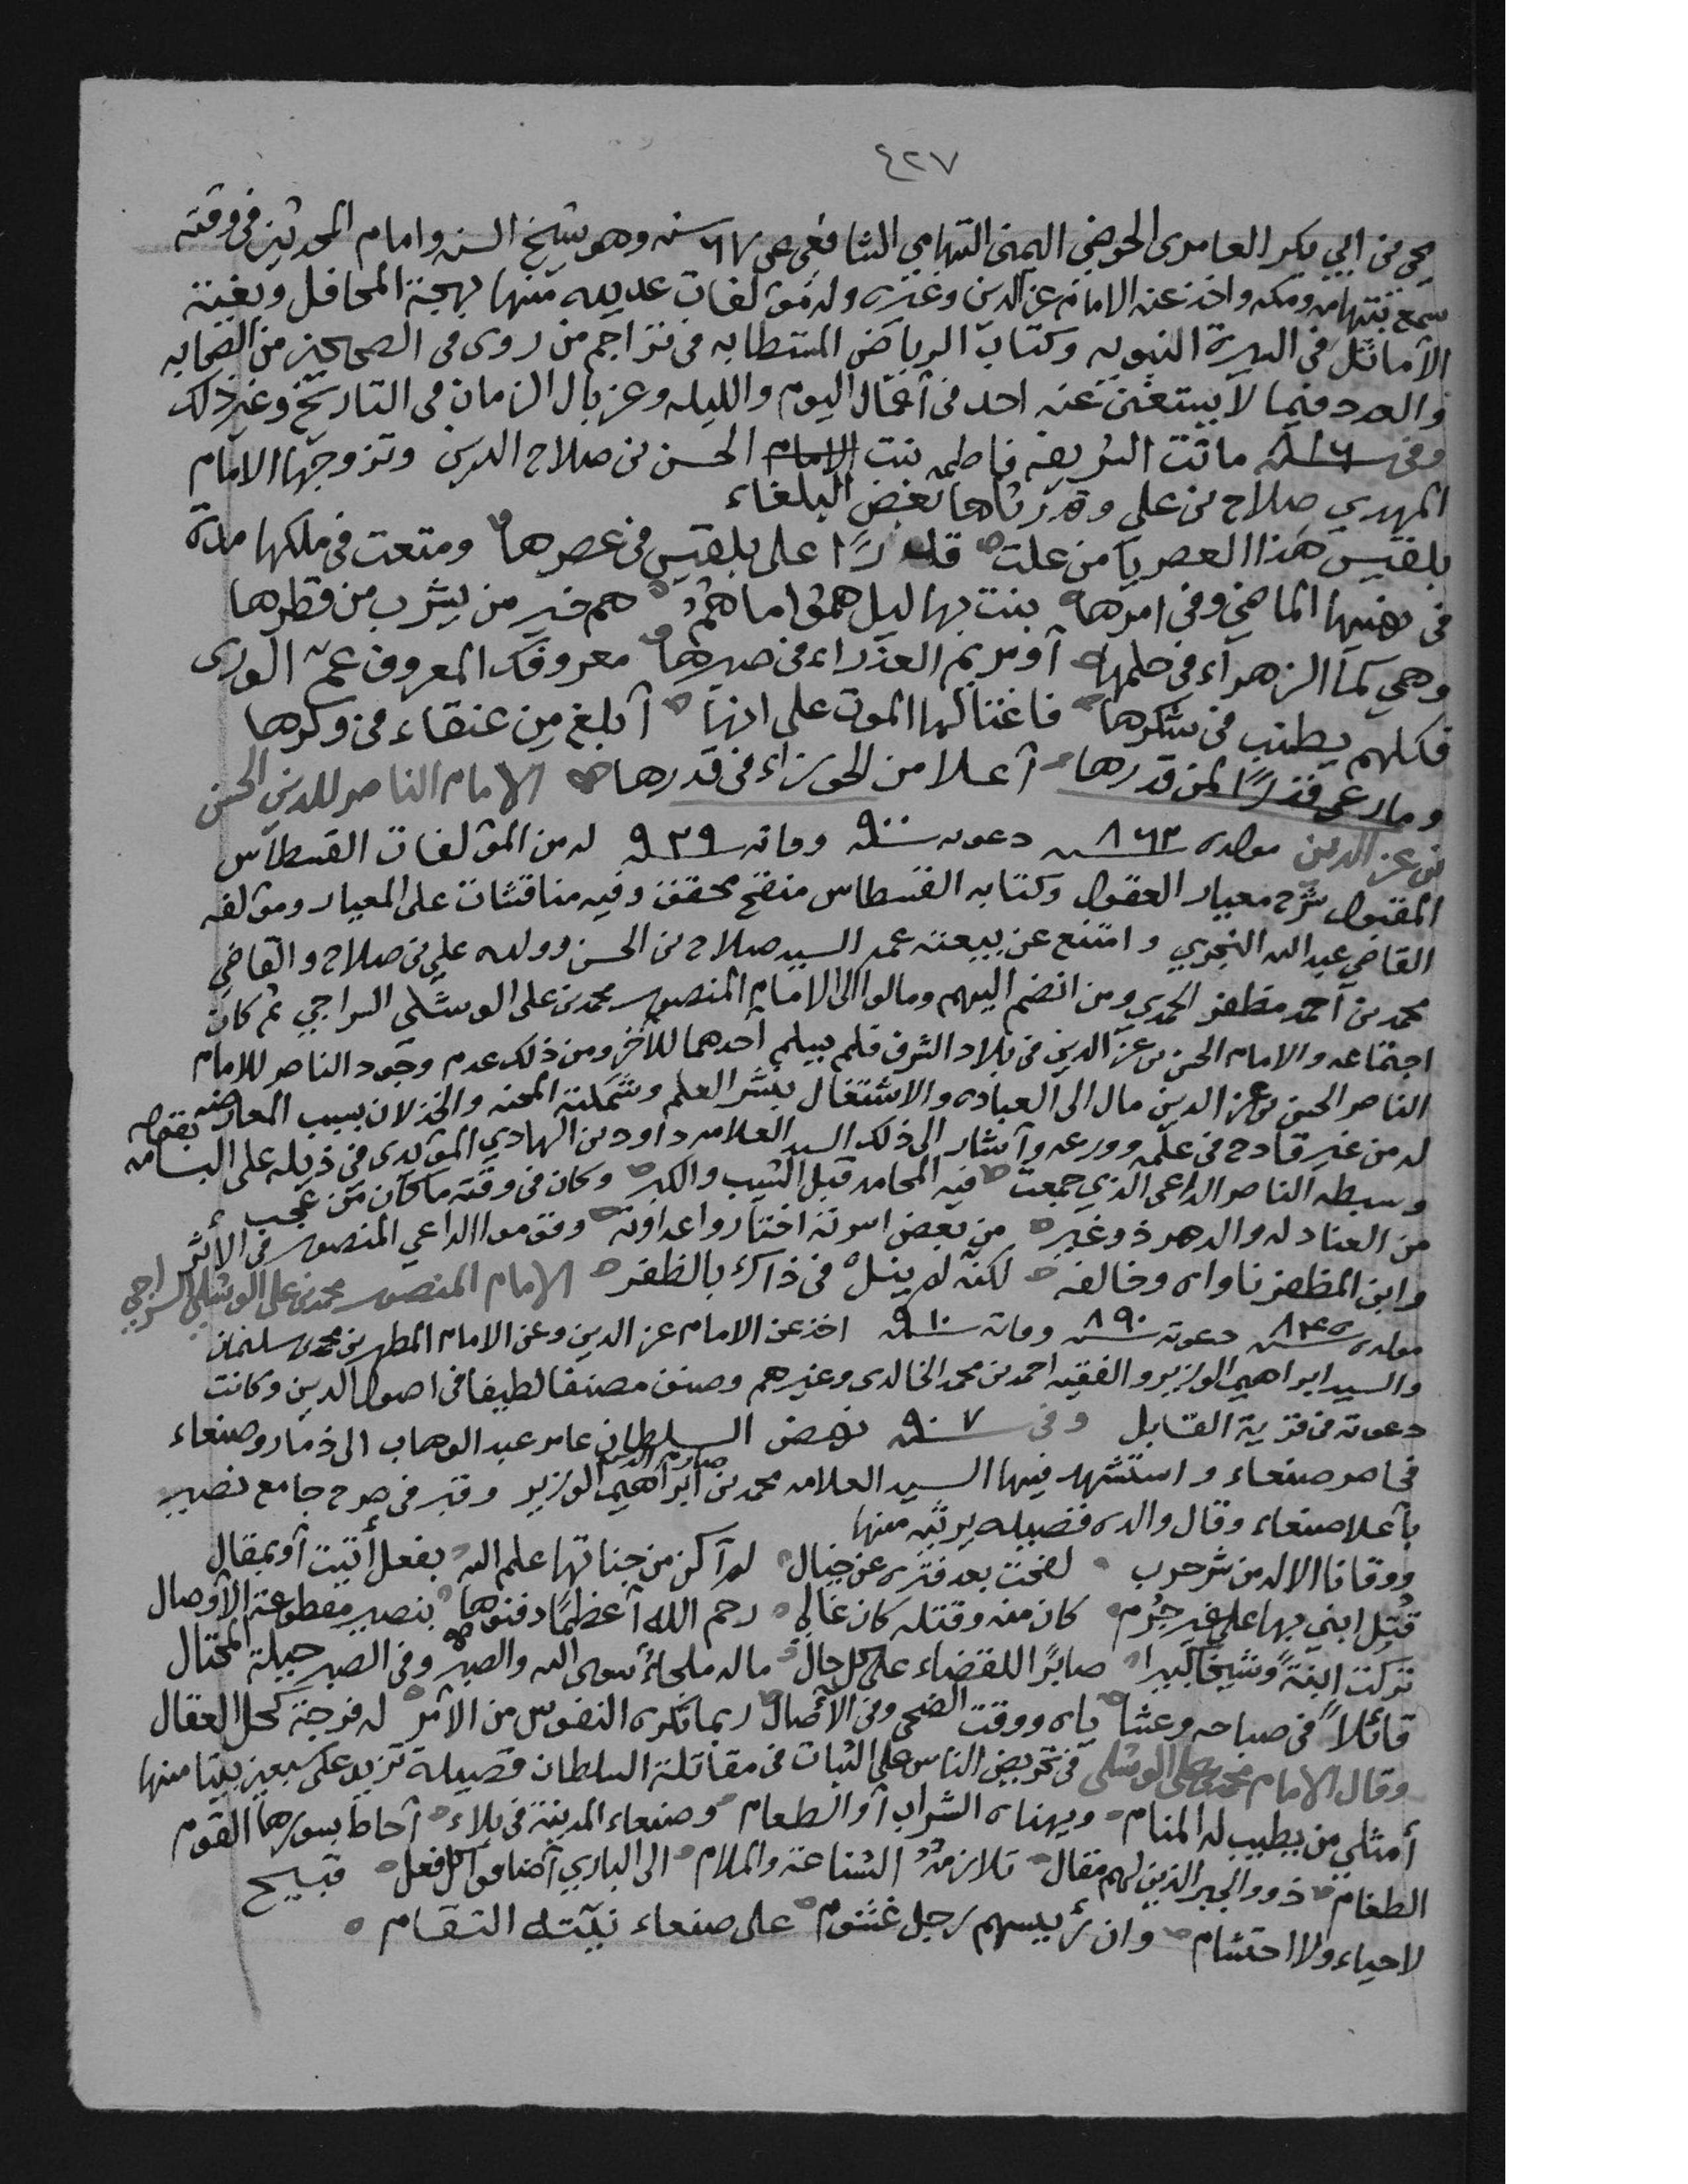 ٤٢٧
يحيى بن ابي بكر العامرى الحرضي اليمنى التهامي الشافعي عن ٧٦ سنه وهو شيخ السنه وامام المحدثين فى وقته
سمع بتهامه ومكه واخذ عنه الامام عز الدين وغيره وله مؤلفات عديده منها بهجة المحافل وبغية
الأماثل فى السيرة النبويه وكتاب الرياض المستطابه فى تراجم من روى فى الصحيحين من الصحابه
والعدد فيما لا يستغنى عنه احد فى أعمال اليوم والليله وغربال الزمان فى التاريخ وغير ذلك
وفى سنه ماتت الشريفه فاطمه بنت الامام الحسن بن صلاح الدين وتزوجها الامام
المهدي صلاح بن علي وقد رثاها بعض البلغاء
بلقيس هذا العصر يا من علت قدرًا على بلقيس فى عصرها ومتعت فى ملكها مدة
فى نهيها الماضي وفى امرها بنت بهاليل همو اما هُمُ هم خير من يشرب من قطرها
وهي كما الزهرآء في حلمها أو مريم العذراء فى صبرها معروفك المعروف عمّ الورى
فكلهم يطنب فى شكرها فاغتالها الموت على انها أبلغ من عنقاء فى وكرها
وما رعى قدرًا لمن قدرها أعلا من الجوزاء فى قدرها الامام الناصر للدين الحسن
بن عز الدين مولده ٨٦٣ سنه دعوته ٩٠٠ سنه وفاته ٩٢٩ سنه له من المؤلفات القسطاس
المقبول شرح معيار العقول وكتابه القسطاس منقح محقق وفيه مناقشات على المعيار ومؤلفه
القاضي عبد الله النجري وامتنع عن بيعته عمه السيد صلاح بن الحسن وولده علي بن صلاح والقاضي
محمد بن أحمد مظفر الحمدي ومن انضم اليهم ومالوا الى الامام المنصور محمد بن على الوشلي السراجي ثم كان
اجتماعه والامام الحسن بن عز الدين فى بلاد الشرف فلم يسلم أحدهما للآخر ومن ذلك عدم وجود الناصر للامام
الناصر الحسن بن عز الدين مال الى العباده والاشتغال بنشر العلم وشملته المحنه والخذلان بسبب المعارضه
له من غير قادح فى علمه وورعه وأشار الى ذلك السيد العلامه داود بن الهادي المؤيدى فى ذيله على البسامه بقوله
وسبطه الناصر الداعى الذي جمعت فيه المحامد قبل الشيب والكبر وكان فى وقته ما كان من عجب
من العناد له والدهر ذو غير من بعض اسرته اختاروا عداوته وقوموا الداعي المنصور فى الأثر
وابن المظفر ناواه وخالفه لكنه لم ينل فى ذاك بالظفر الامام المنصور محمد بن على الوشلي السراجي
مولده ٨٤٥ سنه دعوته ٨٩٠ سنه وفاته ٩١٠ سنه اخذ عن الامام عز الدين وعن الامام المطهر بن محمد بن سليمان
والسيد ابراهيم الوزير والفقيه احمد بن محمد الخالدى وغيرهم وصنف مصنفا لطيفا فى اصول الدين وكانت
دعوته فى قرية القابل وفى ٩٠٧ سنه نهض السلطان عامر عبد الوهاب الى ذمار وصنعاء
فحاصر صنعاء واستشهد فيها السيد العلامه محمد بن صارم الدين ابراهيم الوزير وقبر فى صرح جامع نصير
بأعلا صنعاء وقال والده قصيده يرثيه منها
ووقانا الاله من شر حرب لفحت بعد فتره عن خيال لم أكن من جناتها علم الله بفعل أتيت أو بمقال
قُتل ابني بها على غير جُرم كان منه وقتله كان غالى رحم الله أعظمًا دفنوها بنصير مقطوعة الأوصال
تركت ابنةً وشيخًا كبيرا صابرًا للقضاء على كل حال ما له ملجاءٌ سوى الله والصبر وفى الصبر حيلة المحتال
قائلاً فى صباحه وعشا ياه ووقت الضحى وفى الآصال ربما تكره النفوس من الأمر له فرجة كحل العقال
وقال الامام محمد بن على الوشلى فى تحريض الناس على الثبات فى مقاتلة السلطان قصيدة تزيد على سبعين بيتا منها
أمثلي من يطيب له المنام ويهناه الشراب أو الطعام وصنعاء المدينة فى بلاء أحاط بسورها القوم
الطغام ذوو الجبر الذين لهم مقال تلازمهُ الشناعة والملام الى الباري أضافوا كل فعل قبيح
لا حياء ولا احتشام وان رئيسهم رجل غشوم على صنعاء نيّته انتقام